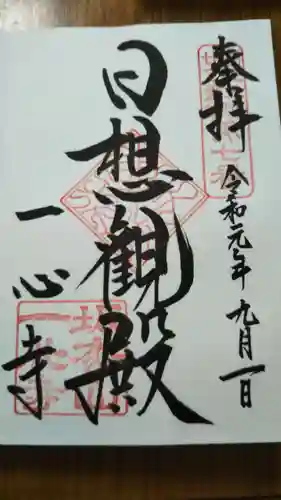 奉拝
令和元年九月一日
日想観殿
一心寺